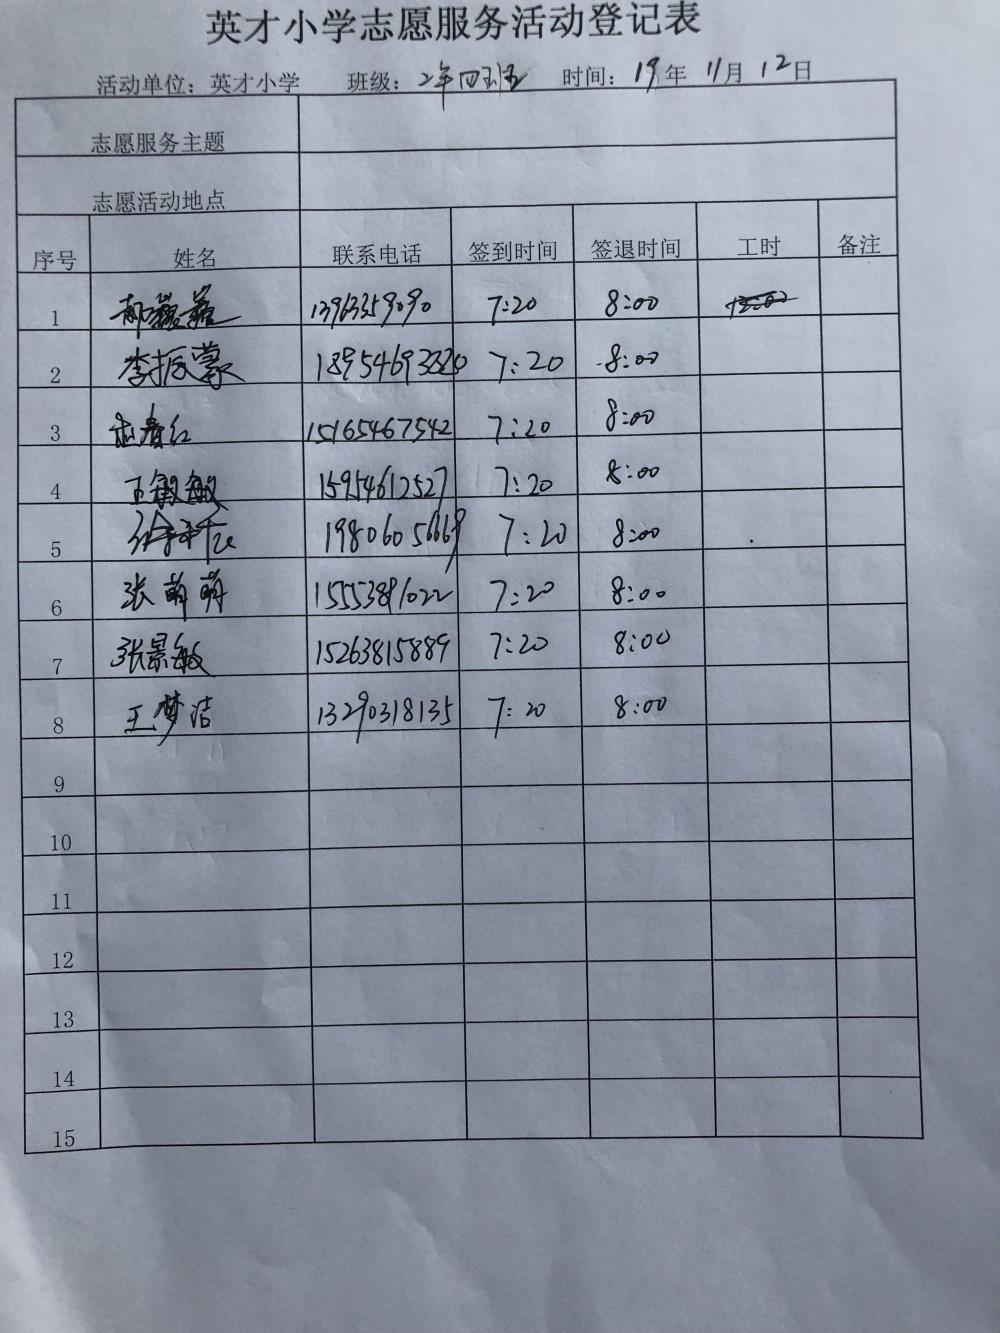 英才小学志愿服务活动登记表
活动单位：英才小学 班级：2年四班 时间：19年 11月 12日
志愿服务主题
志愿活动地点
序号 姓名 联系电话 签到时间 签退时间 工时 备注
1 13963359090 7:20 8:00
2 李振蒙 7:20 8:00
3 赵春红 15165467542 7:20 8:00
4 王敏敏 15954612527 7:20 8:00
5 19806056669 7:20 8:00
6 张萌萌 15553891022 7:20 8:00
7 张景敏 15263815889 7:20 8:00
8 王梦洁 13290318135 7:20 8:00
9
10
11
12
13
14
15